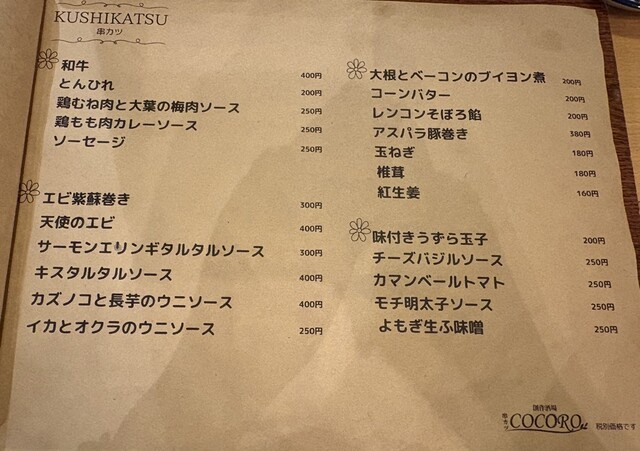 KUSHIKATSU
串カツ
和牛 400円
とんひれ 200円
鶏むね肉と大葉の梅肉ソース 250円
鶏もも肉カレーソース 250円
ソーセージ 250円
エビ紫蘇巻き 300円
天使のエビ 400円
サーモンエリンギタルタルソース 300円
キスタルタルソース 400円
カズノコと長芋のウニソース 400円
イカとオクラのウニソース 250円
大根とベーコンのブイヨン煮 200円
コーンバター 200円
レンコンそぼろ餡 200円
アスパラ豚巻き 380円
玉ねぎ 180円
椎茸 180円
紅生姜 160円
味付きうずら玉子 200円
チーズバジルソース 250円
カマンベールトマト 250円
モチ明太子ソース 250円
よもぎ生ふ味噌 250円
創作酒場
串カツ COCORO
税別価格です